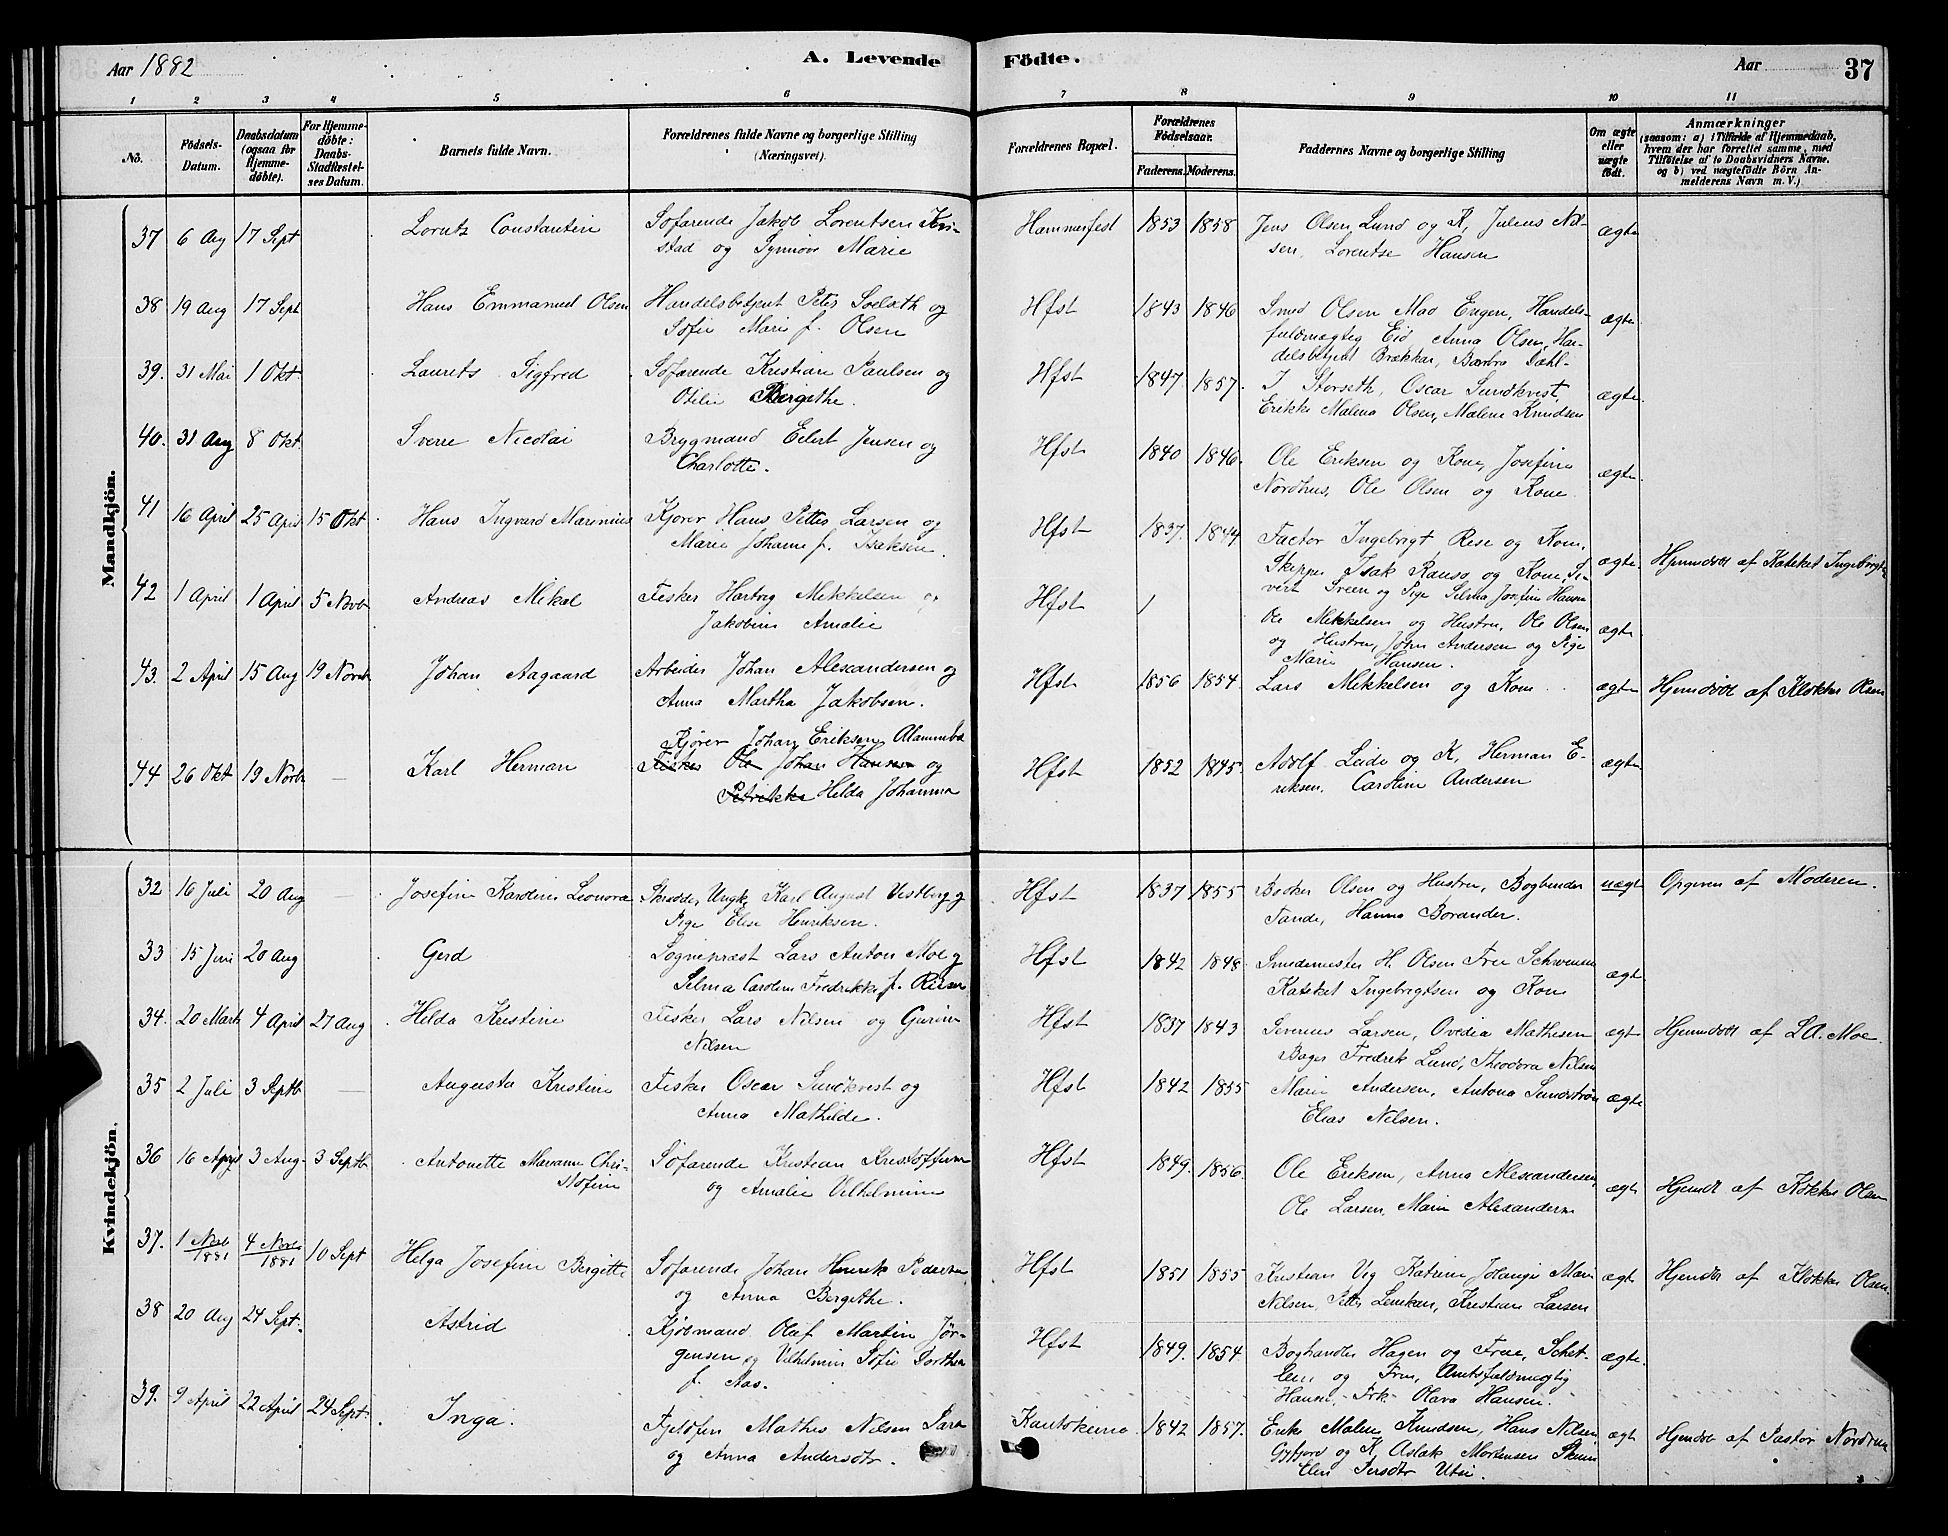 Aar 1882
A. Levende Födte.
Aar
37
1 2 3 4 5 6 7 8 9 10 11
No.
Födsels-Datum.
Daabsdatum (ogsaa for Hjemme-döbte).
For Hjemme-döbte: Daabs-Stadfæstel-ses Datum.
Barnets fulde Navn.
Forældrenes fulde Navne og borgerlige Stilling (Næringsvei).
Forældrenes Bopæl.
Forældrenes Födselsaar. Faderens. Moderens.
Faddernes Navne og borgerlige Stilling
Om ægte eller uægte födt.
Anmærkninger
(saasom: a) i Tilfælde af Hjemmedaab,
hvem der har forrettet samme, med
Tilföielse af to Daabsvidners Navne,
og b) ved uægtefödte Börn An-
melderens Navn m. V.)
Mandkjön.
37 6 Aug 17 Sept Lorentz Constantin Söfarende Jakob Lorentsen
stad og Synnöve Marie
Hammerfest 1853 1858 Jens Olsen Lund og K, Julius Nil-
sen, Lorentse Hansen
ægte
38 19 Aug 17 Sept Hans Emmanuel Olsen Handelsbetjent Peter og
Sofie Marie f. Olsen
Hfst 1843 1846 Smed Olsen Mad Engen, Handels-
fuldmægtig Eid Anna Olsen, Han-
delsbetjent Brækkan, Barbro Dahl
ægte
39. 31 Mai 1 Okt. Laurits Sigfred Söfarende Kristian Paulsen og
Otelie Birgithe.
Hfst 1847. 1857. J Storseth, Oscar Sundkvist,
Erikke Malena Olsen, Malene Knudsen
ægte
40. 31 Aug 8 Okt. Sverre Nicolai Brygmand Eilert Jensen og
Charlotte.
Hfst 1840 1846. Ole Eriksen og Kone, Josefine
Nordhus, Ole Olsen og Kone.
ægte
41 16 April 25 April 15 Okt. Hans Ingvard Marinius Kjörer Hans Petter Larsen og
Marie Johanne f. Isaksen.
Hfst 1837. 1844 Factor Ingebrigt Rise og Kone,
Skipper Isak Ranso og Kone, Si-
vert Sveen og Pige Selma Josefine Hansen
ægte Hjemmdöbt af Kateket Ingebrigtsen
42 1 April 1 April 5 Novb Andreas Mikal Fisker Hartvig Mikkelsen og
Jakobine Amalie
Hfst / Ole Mikkelsen og Hustru, Ole Olsen
og Hustru, John Andersen og Pige
Marie Hansen.
ægte
43. 2 April 15 Aug 19 Novb Johan Aagaard Arbeider Johan Alexandersen og
Anna Martha Jakobsen.
Hfst 1856 1854 Lars Mikkelsen og Kone
ægte Hjemdöbt af Klokker Olsen
44 26 Okt 19 Novb — Karl Herman Kjörer Johan Eriksen
Fisker Ole Johan Hansen og
Petrikke Hilda Johanna
Hfst 1852 1845. Adolf Leide og K, Herman E-
riksen, Caroline Andersen
ægte
Kvindekjön.
32 16 Juli 20 Aug — Josefine Karoline Leonora Skrædder, Ungk. Karl August Vestberg og
Pige Elise Henriksen.
Hfst 1837 1855 Bøcker Olsen og Hustru, Bogbinder
Tande, Hanna Borander.
uægt Opgiven af Moderen.
33 15 Juni 20 Aug Gerd Sognepræst Lars Anton Moe og
Selma Caroline Fredrikke f. Riiser
Hfst 1842 1848 Smedemester H. Olsen Frue
Kateket Ingebrigtsen og Kone
ægt
34. 20 Marts 4 April 27 Aug Hilda Kristine Fisker Lars Nilsen og Gurine
Nilsen
Hfst 1837 1843 Severine Larsen, Ovedia Mathisen
Bager Fredrik Lund, Theodora Nilsen
ægt Hjemmdöbt af L.A. Moe.
35 2 Juli 3 Septb — Augusta Kristine Fisker Oscar Sundkvist og
Anna Mathilde.
Hfst 1842 1855 Marie Andersen, Antona Sundström
Elias Nilsen.
ægte
36 16 April 3 Aug. 3 Septb Antonette Marianne Chri-
stofine
Söfarende Kristian Kristoffersen
og Amalie Vilhelmine
Hfst 1849. 1856. Ole Eriksen, Anna Alexandersen
Ole Larsen, Marie Alexandersen
ægt Hjemdt af Klokker Olsen
37. 1 Novb 1881 4 Novb 1881 10 Sept Helga Josefine Bergitte Söfarende Johan Henrik Pedersen
og Anna Bergithe.
Hfst 1851 1855 Kristian Vig Katrine Marie
Nilsen, Petter Lemiken, Kristian Larsen
ægt Hjemdöbt af Klokker Olsen
38 20 Aug 24 Sept. Astrid Kjöbmand Olaf Martin Jör-
gensen og Vilhelmine Sofie Dorthea
f. Aas.
Hfst 1849. 1854. Boghandler Hagen og Frue,
og Frue, Amtsfuldmægtig
Hansen, Frk. Olava Hansen.
ægte
39. 9 April 22 April 24 Sept. Inga. Fjeldfin Mathis Nilsen Sara
og Anna Andersdtr.
Kautokeino. 1842 1857. Erik Malen Knudsen, Hans Nilsen
og K. Aslak Mortensen
Elen Persdtr Utsi.
ægt Hjemdöbt af Pastor Nordrum